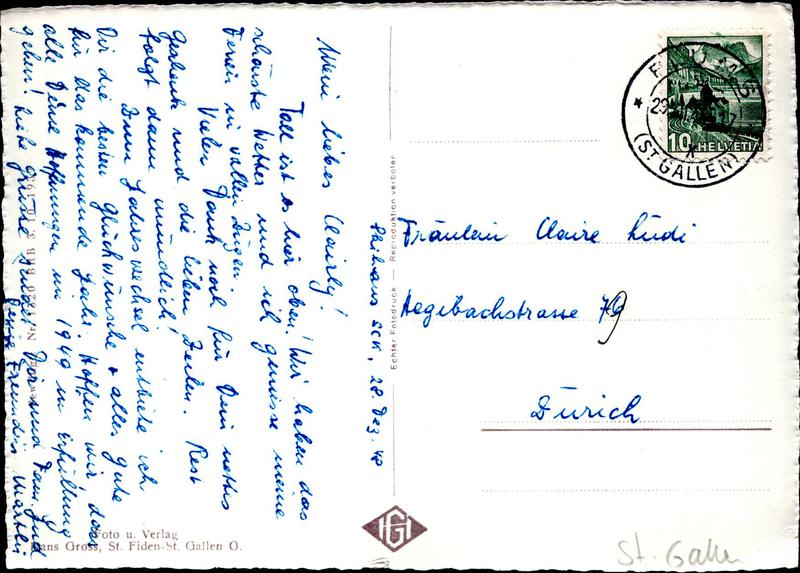 Mein liebes Clairly!
Toll ist es hier oben! Wir haben das
schönste Wetter und ich geniesse meine
Ferien in vollen Zügen.
Vielen Dank noch für Dein nettes
Geschenk und die lieben Zeilen. Rest
folgt dann mündlich!
Zum Jahreswechsel entbiete ich
Dir die besten Glückwünsche & alles Gute
für das kommende Jahr. Hoffen wir, dass
alle Deine Hoffnungen im 1949 in Erfüllung
gehen! Liebe Grüsse Dir und Fam. und
Deine Freundin
Skihaus SCK, 28. Dez. 48
Echter Fotodruck — Reproduktion verboten
HELVETIA
10
(ST. GALLEN)
Fräulein Claire Lüdi
Aegibachstrasse 79
Zürich
Foto u. Verlag
Hans Gross, St. Fiden-St. Gallen O.
St. Gallen